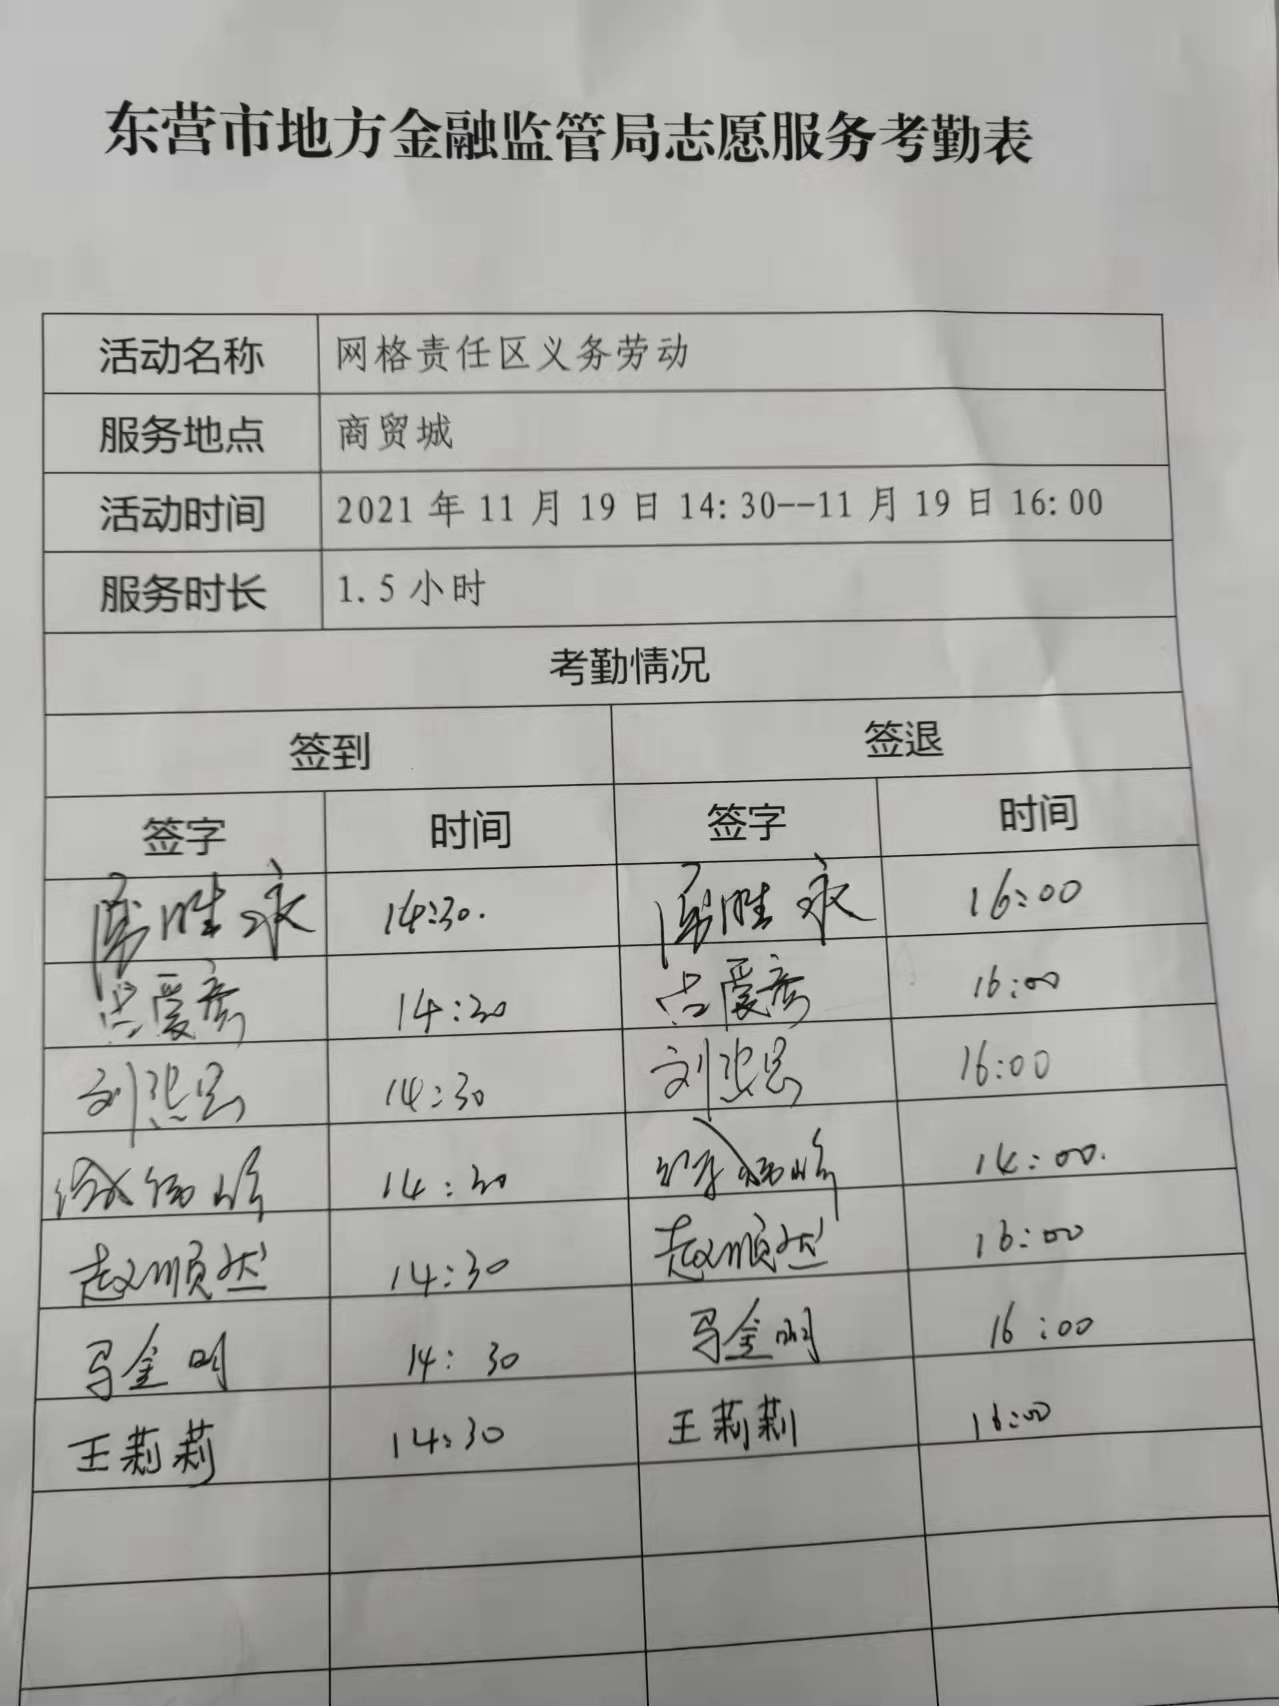 东营市地方金融监管局志愿服务考勤表
活动名称 网格责任区义务劳动
服务地点 商贸城
活动时间 2021年11月19日14:30--11月19日16:00
服务时长 1.5小时
考勤情况
签到 签退
签字 时间 签字 时间
胜永 14:30. 胜永 16:00
爱彦 14:30 爱彦 16:00
刘 14:30 刘 16:00
14:30 14:00.
赵顺然 14:30 赵顺然 16:00
马金明 14:30 马金明 16:00
王莉莉 14:30 王莉莉 16:00